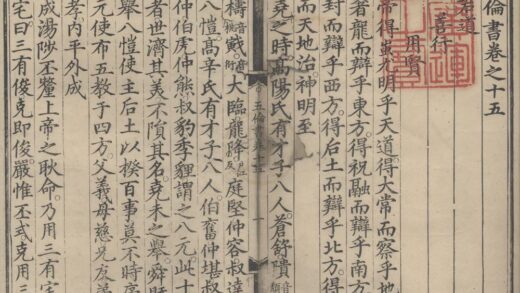 倫書卷之十五
君道
善行
用賢
帝得蚩尤明乎天道。得大常而察乎地
者龍而辯乎東方。得祝融而辯乎南方
封而辯乎西方。得后土而辯乎北方。得
而天地治神明至
堯之時。高陽氏有才子八人。蒼舒隤音
五倫書卷十五 一
檮音戭音衍大臨龍降庭堅仲容叔達
八愷。高辛氏有才子八人。伯奮仲堪叔
仲伯虎仲熊叔豹季貍謂之八元此十
者世濟其美不隕其名。堯未之舉。舜
舉八愷使主后土以揆百事莫不時序
元使布五教于四方父義母慈兄友弟
孝內平外成
成湯陟丕釐上帝之耿命。乃用三有宅
宅曰三有俊克即俊。嚴惟丕式克用三